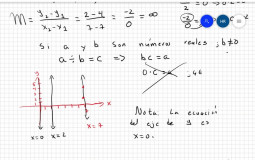 m = y₂-y₁ / x₂-x₁ = 2-4 / 7-7 = -2/0 = ∞
-2/0
si a y b son números reales ; b≠0
a ÷ b = c ⇒ bc = a
0·c = a
y
x
x=0
x=7
Nota: La ecuación
del eje de y es
x=0.